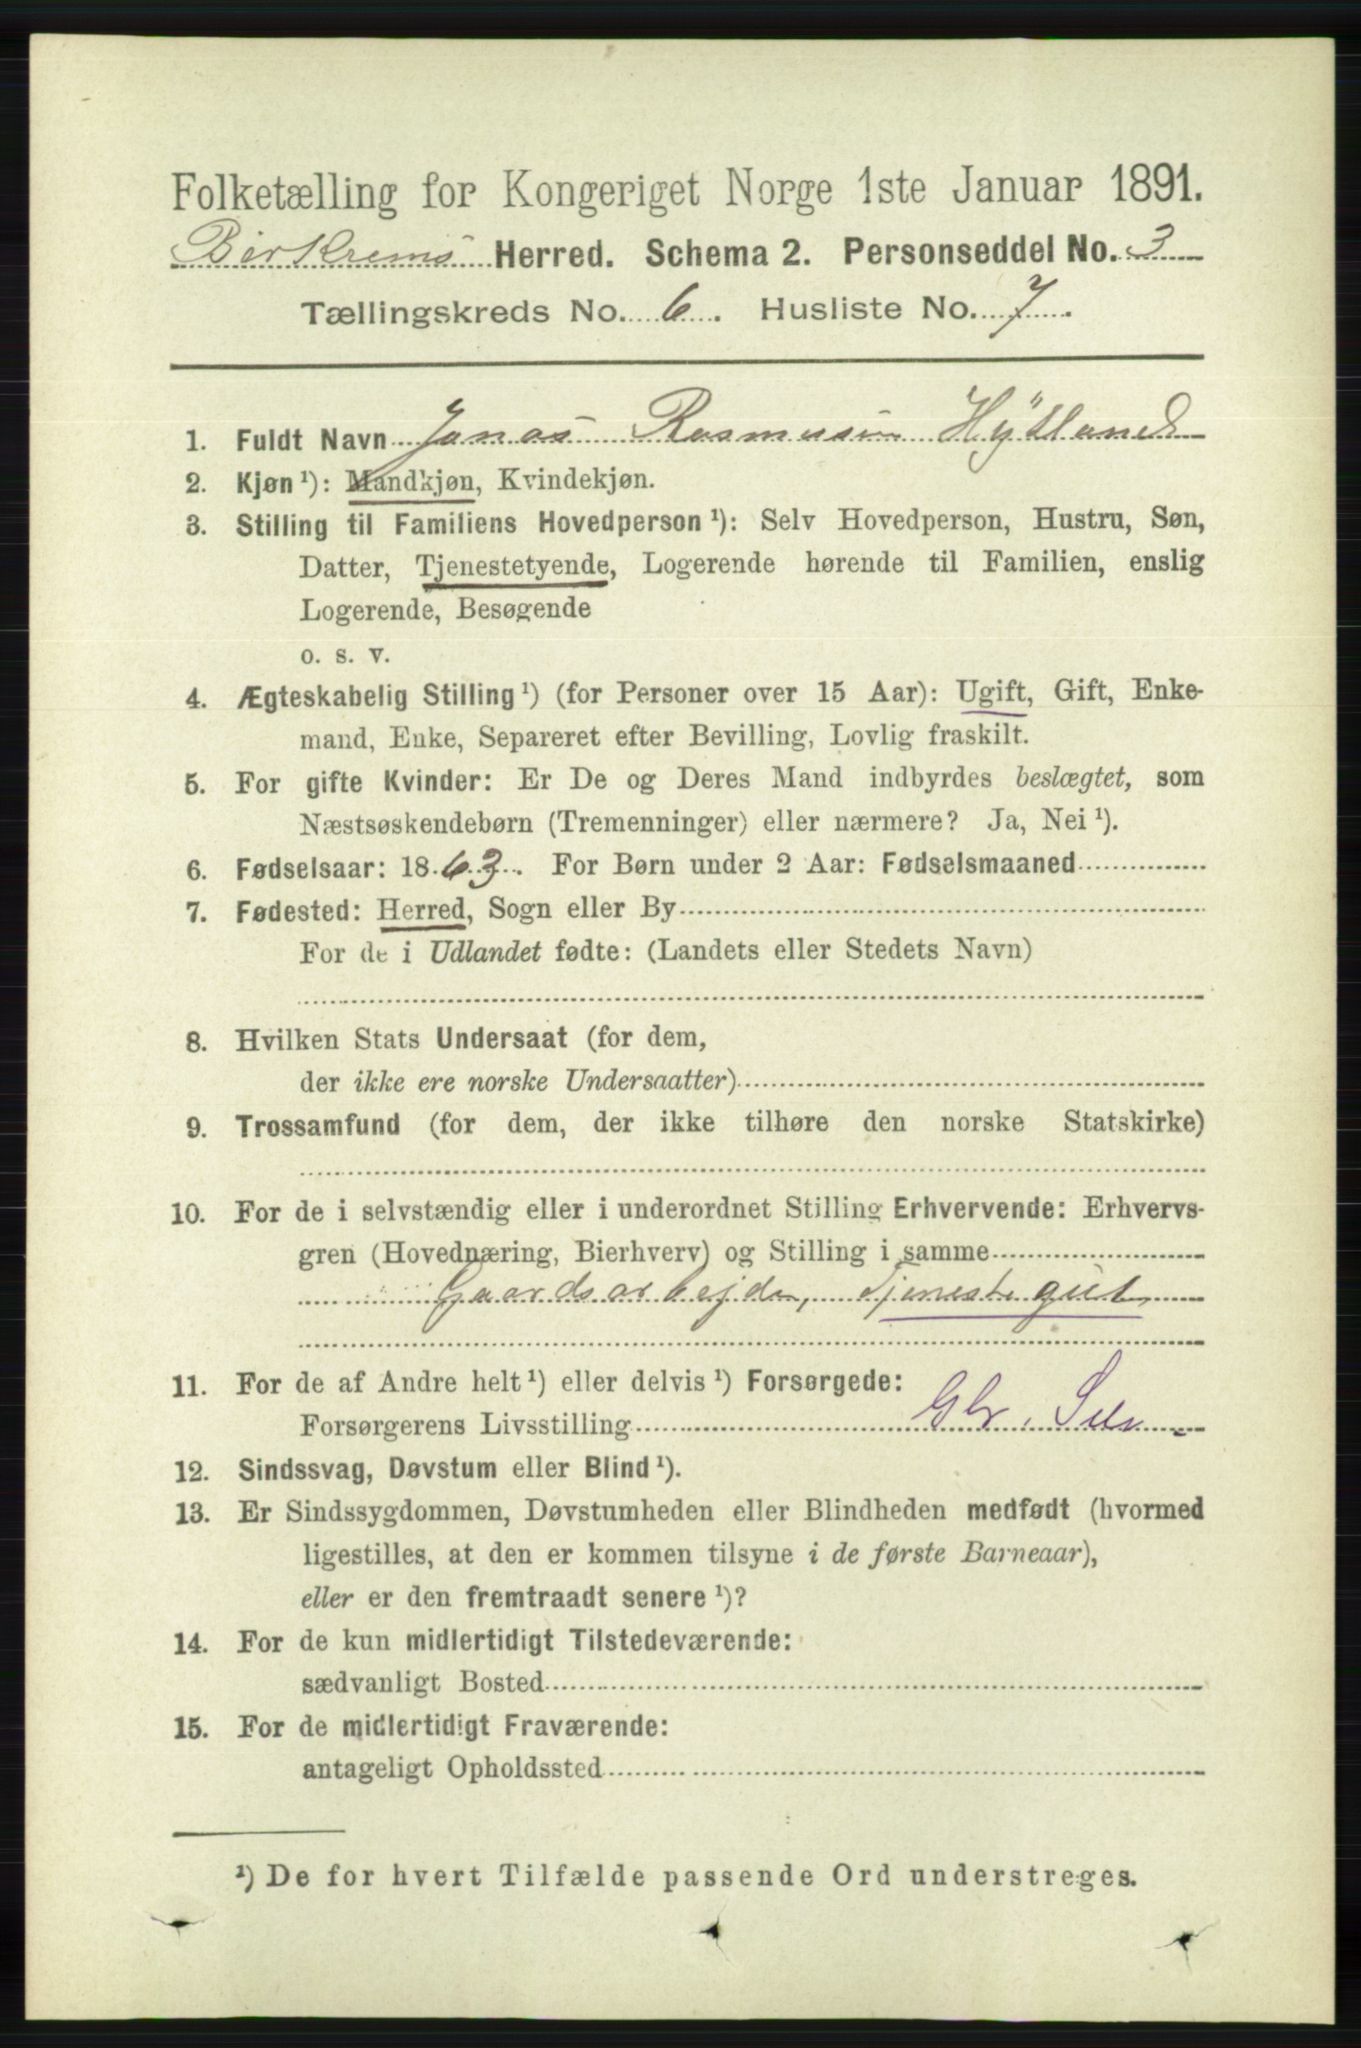 Folketælling for Kongeriget Norge 1ste Januar 1891.
Birkrems Herred. Schema 2. Personseddel No. 3
Tællingskreds No. 6. Husliste No. 7.
1. Fuldt Navn Jonas Rasmusen Hÿtland
2. Kjøn ¹): Mandkjøn, Kvindekjøn.
3. Stilling til Familiens Hovedperson ¹): Selv Hovedperson, Hustru, Søn,
Datter, Tjenestetyende, Logerende hørende til Familien, enslig
Logerende, Besøgende
o. s. v.
4. Ægteskabelig Stilling ¹) (for Personer over 15 Aar): Ugift, Gift, Enke-
mand, Enke, Separeret efter Bevilling, Lovlig fraskilt.
5. For gifte Kvinder: Er De og Deres Mand indbyrdes beslægtet, som
Næstsøskendebørn (Tremenninger) eller nærmere? Ja, Nei ¹).
6. Fødselsaar: 1863. For Børn under 2 Aar: Fødselsmaaned
7. Fødested: Herred, Sogn eller By
For de i Udlandet fødte: (Landets eller Stedets Navn)
8. Hvilken Stats Undersaat (for dem,
der ikke ere norske Undersaatter)
9. Trossamfund (for dem, der ikke tilhøre den norske Statskirke)
10. For de i selvstændig eller i underordnet Stilling Erhvervende: Erhvervs-
gren (Hovednæring, Bierhverv) og Stilling i samme
Gaardsarbejder, Tjenestegut
11. For de af Andre helt ¹) eller delvis ¹) Forsørgede:
Forsørgerens Livsstilling
12. Sindssvag, Døvstum eller Blind ¹).
13. Er Sindssygdommen, Døvstumheden eller Blindheden medfødt (hvormed
ligestilles, at den er kommen tilsyne i de første Barneaar),
eller er den fremtraadt senere ¹)?
14. For de kun midlertidigt Tilstedeværende:
sædvanligt Bosted
15. For de midlertidigt Fraværende:
antageligt Opholdssted
¹) De for hvert Tilfælde passende Ord understreges.